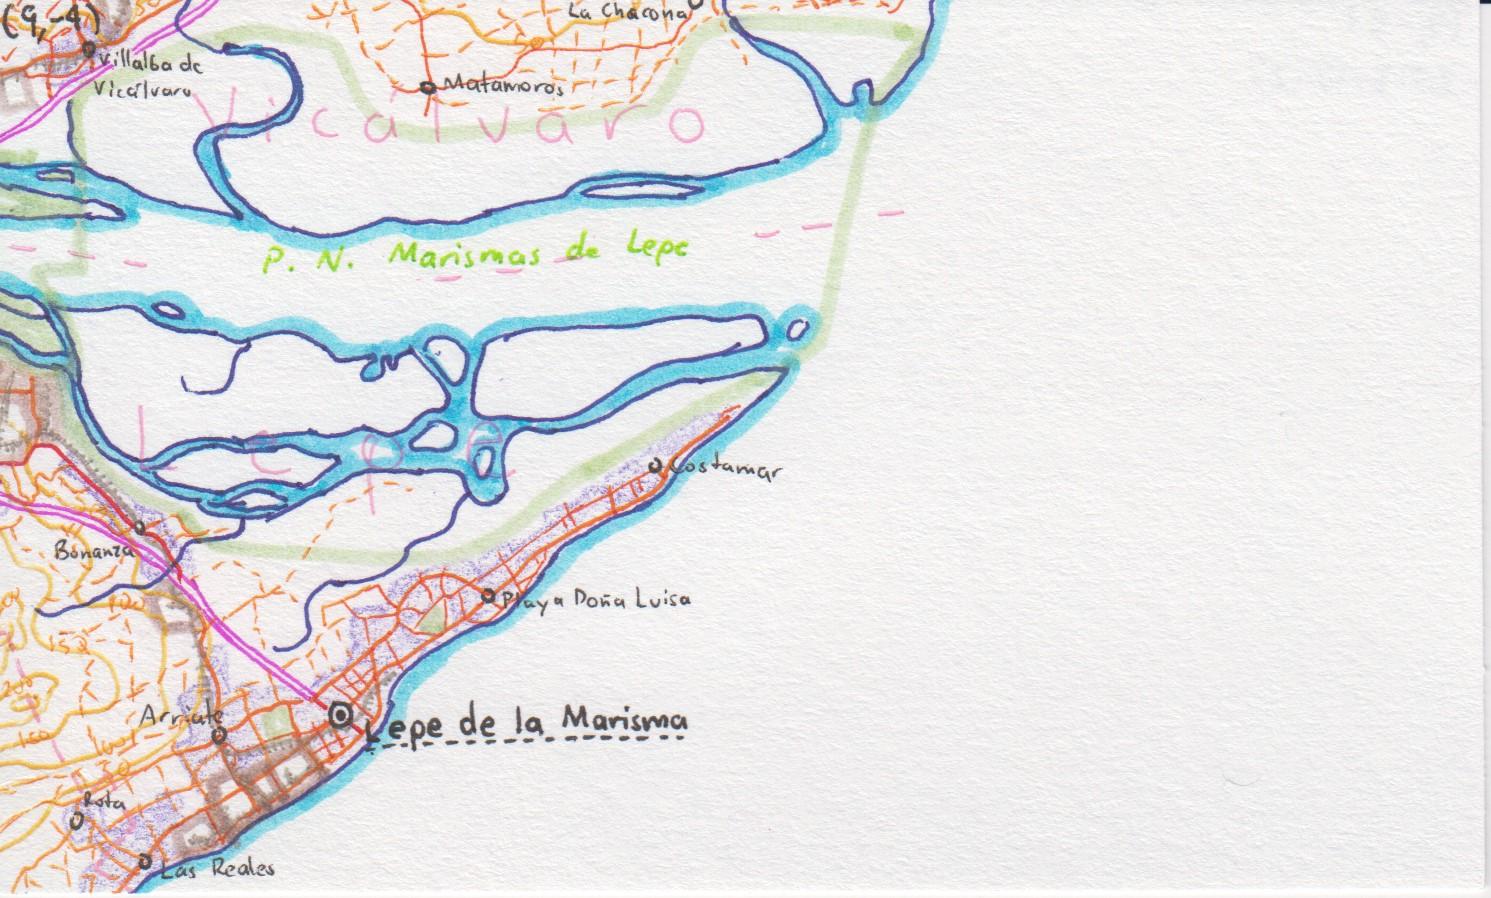 (9,-4)
La Chacona
Villalba de
Vicálvaro
Matamoros
Vicálvaro
P. N. Marismas de Lepe
Lepe
Costamar
Bonanza
Playa Doña Luisa
100
150
200
150
100
50
Arriate
Lepe de la Marisma
Rota
Las Reales